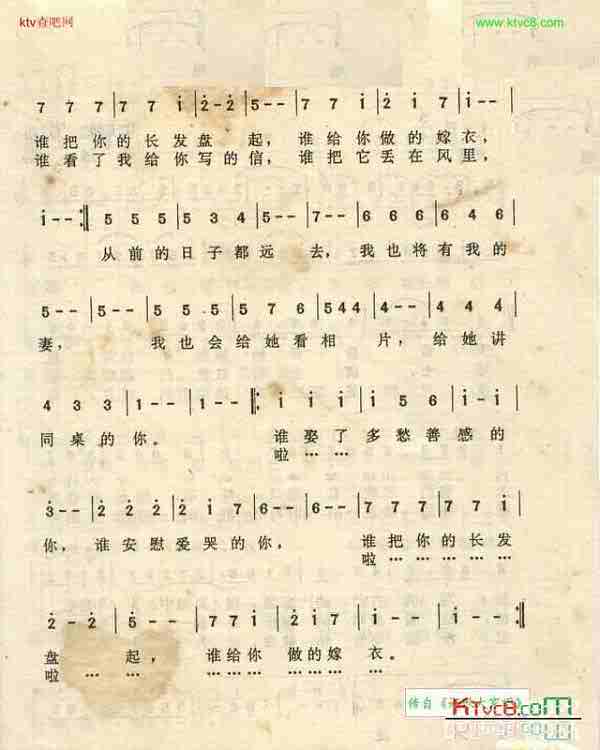 ktv查吧网
www.ktvc8.com
7 7 7 | 7 7 i | 2̇ - 2̇ | 5 - - | 7 7 i | 2̇ i 7 | i - - |
谁把你的长发盘 起， 谁给你做的嫁衣，
谁看了我给你写的信， 谁把它丢在风里，
i - - :‖ 5 5 5 | 5 3 4 | 5 - - | 7 - - | 6 6 6 | 6 4 6 |
从前的日子都远 去， 我也将有我的
5 - - | 5 - - | 5 5 5 | 5 7 6 | 5 4 4 | 4 - - | 4 4 4 |
妻， 我也会给她看相 片， 给她讲
4 3 3 | 1 - - | 1 - - :‖ i i i | i 5 6 | i - i |
同桌的你。 谁娶了多愁善感的
啦 …… ……
3̇ - - | 2̇ 2̇ 2̇ | 2̇ i 7 | 6 - - | 6 - - | 7 7 7 | 7 7 i |
你，谁安慰爱哭的你， 谁把你的长发
啦 …… …… ……
2̇ - 2̇ | 5̇ - - | 7 7 i | 2̇ i 7 | i - - | i - - :‖
盘 起， 谁给你 做的嫁衣。
啦 …… …… …… …… ……
KTvc8.com